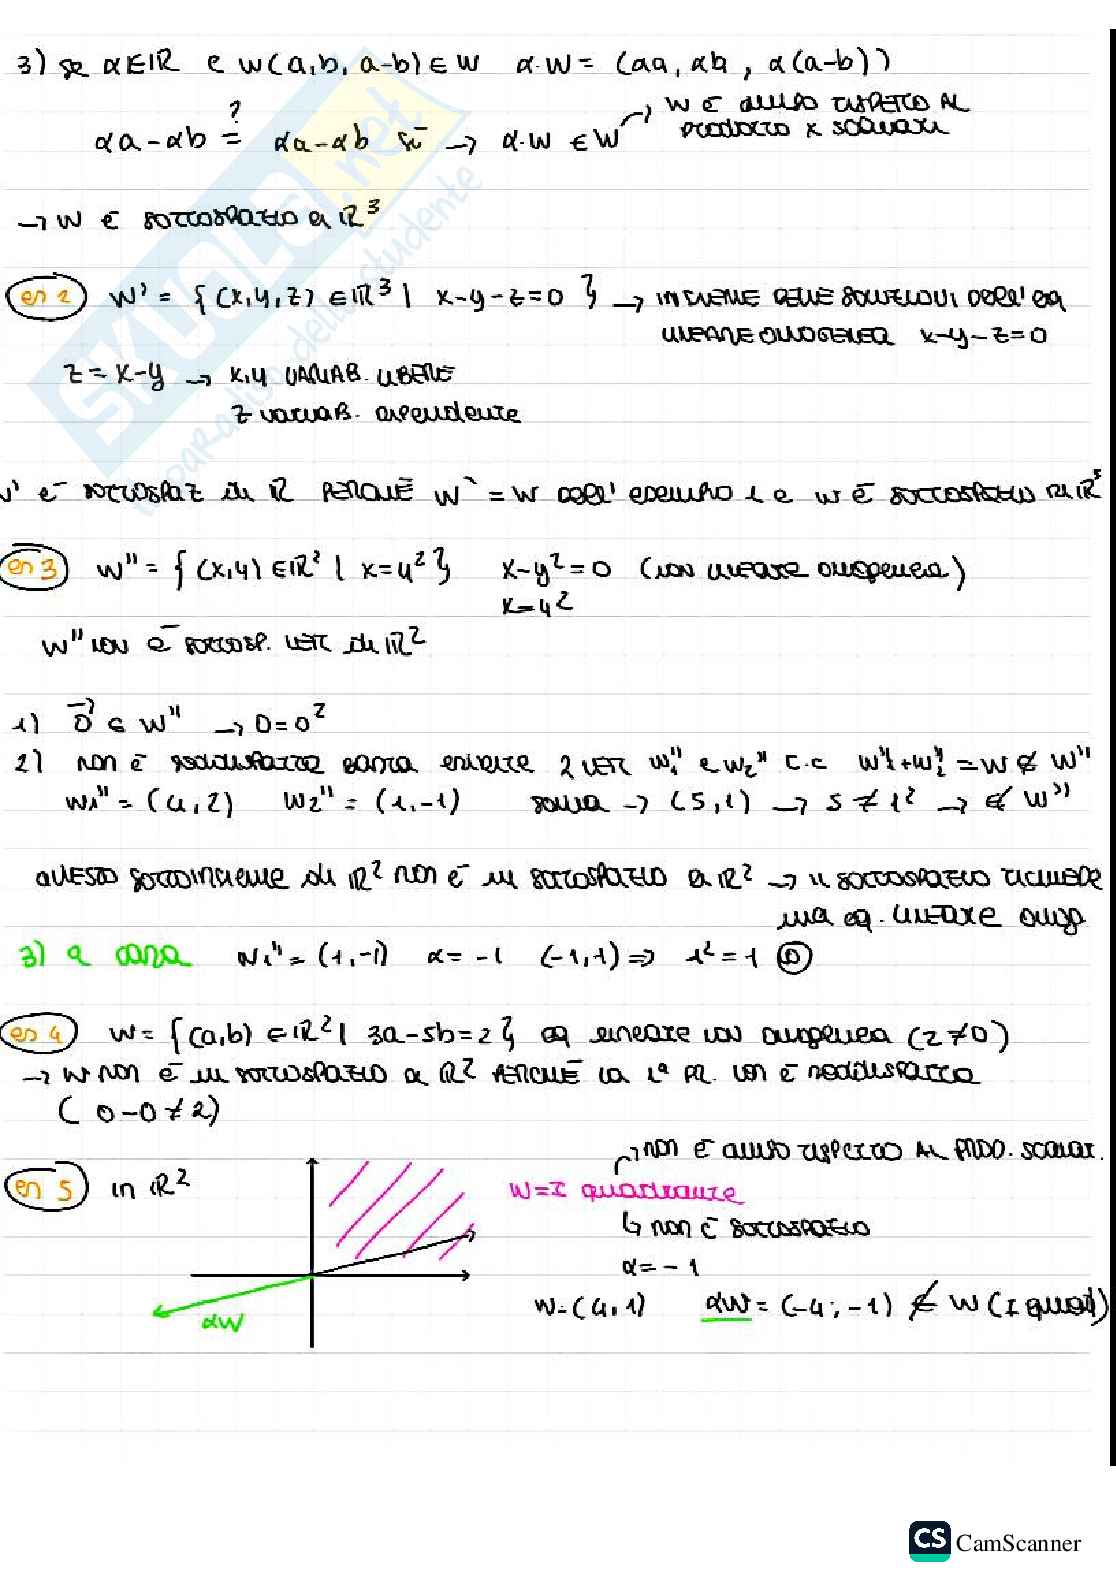 3) se α∈ℝ e w(a,b, a-b) ∈ W α·w = (αa, αb, α(a-b))
→ W è chiuso rispetto al
prodotto x scalari
αa-αb =? αa-αb sì → α·w ∈ W
→ W è sottospazio di ℝ³
es 2 W' = {(x,y,z) ∈ ℝ³ | x-y-z=0 } → insieme delle soluzioni dell'eq
lineare omogenea x-y-z=0
z = x-y → x,y variab. libere
z variab. dipendente
W' è sottospaz di ℝ perché W' = W dell'esempio 1 e W è sottospazio di ℝ³
es 3 W'' = {(x,y) ∈ ℝ² | x=y²} x-y²=0 (non lineare omogenea)
x=y²
W'' non è sottosp. vett di ℝ²
1) 0⃗ ∈ W'' → 0=0²
2) non è soddisfatta basta 2 vett w₁'' e w₂'' t.c w₁''+w₂'' = w ∉ W''
w₁'' = (4,2) w₂'' = (1,-1) somma → (5,1) → 5 ≠ 1² → ∉ W''
questo sottoinsieme di ℝ² non è un sottospazio di ℝ² → il sottospazio richiede
una eq. lineare omog
3) a casa w₁'' = (1,-1) α = -1 (-1,1) ⇒ 1² = 1
es 4 W = {(a,b) ∈ ℝ² | 3a-5b=2} eq lineare non omogenea (2≠0)
→ W non è un sottospazio di ℝ² perché la 1ª pr. non è soddisfatta
( 0-0 ≠ 2)
→ non è chiuso rispetto al prod. scalar.
es 5 in ℝ² W = I quadrante
↳ non è sottospazio
α = -1
w=(4,1) αw = (-4,-1) ∉ W (I quad)
αw
SKUOLA.net
il paradiso dello studente
CS CamScanner